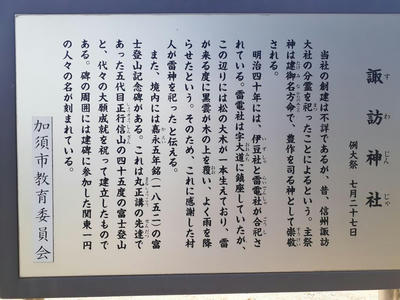 諏訪神社
すわじんじゃ
例大祭 七月二十七日
当社の創建は不詳であるが、昔、信州諏訪
大社の分霊を祀ったことによるという。主祭
神は建御名方命で、豊作を司る神として崇敬
される。
明治四十年には、伊豆社と雷電社が合祀さ
れている。雷電社は字大道に鎮座していたが、
この辺りには松の大木が一本生えており、雷
が来る度に黒雲が木の上を覆い、よく雨を降
らせたという。そのため、これに感謝した村
人が雷神を祀ったと伝える。
また、境内には嘉永五年銘(一八五二)の富
士登山記念碑がある。これは丸正講の先達で
あった五代目正行信山の四十五度の富士登山
と、代々の大願成就を祝って建立したもので
ある。碑の周囲には建碑に参加した関東一円
の人々の名が刻まれている。
加須市教育委員会